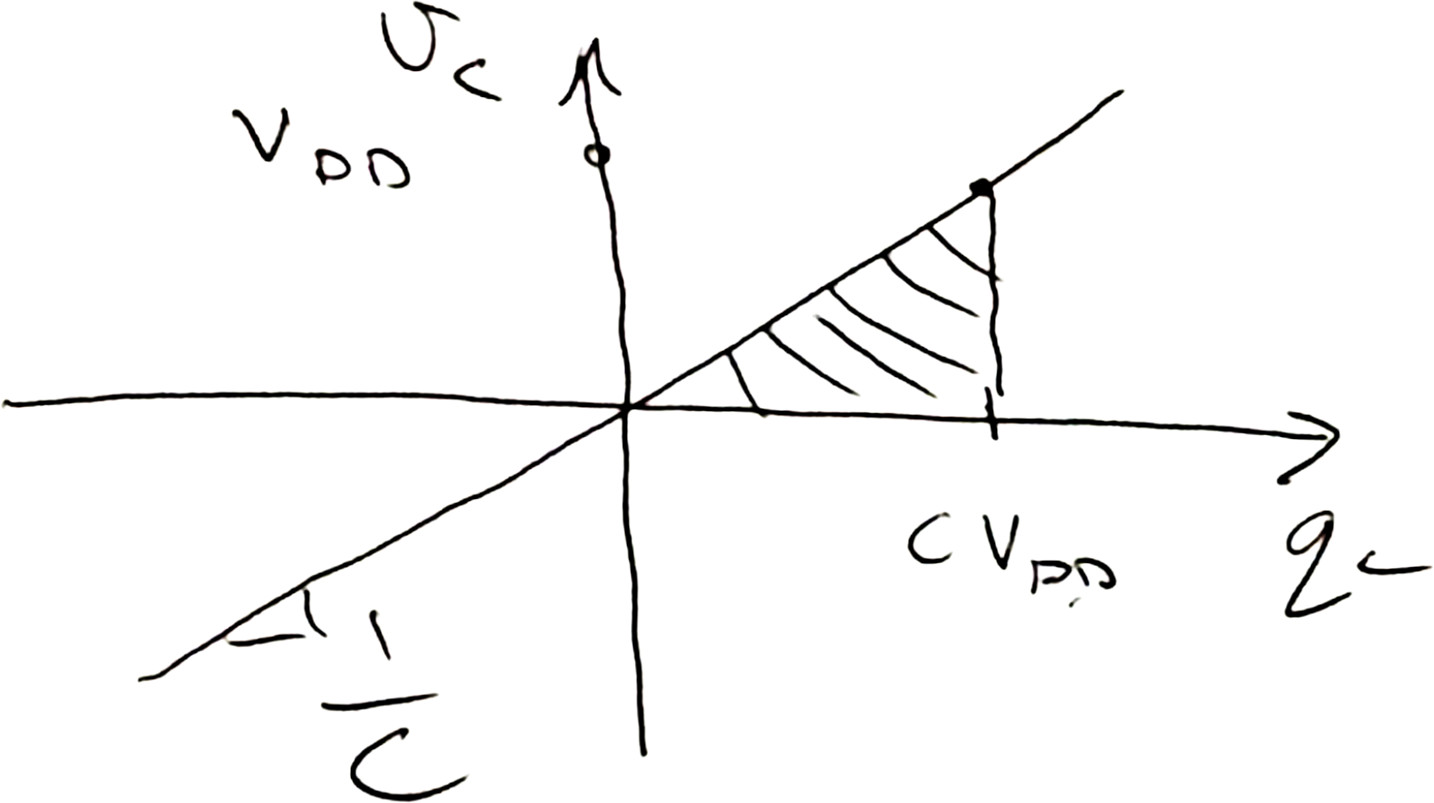 v_C
V_DD
C V_DD
q_C
1/C